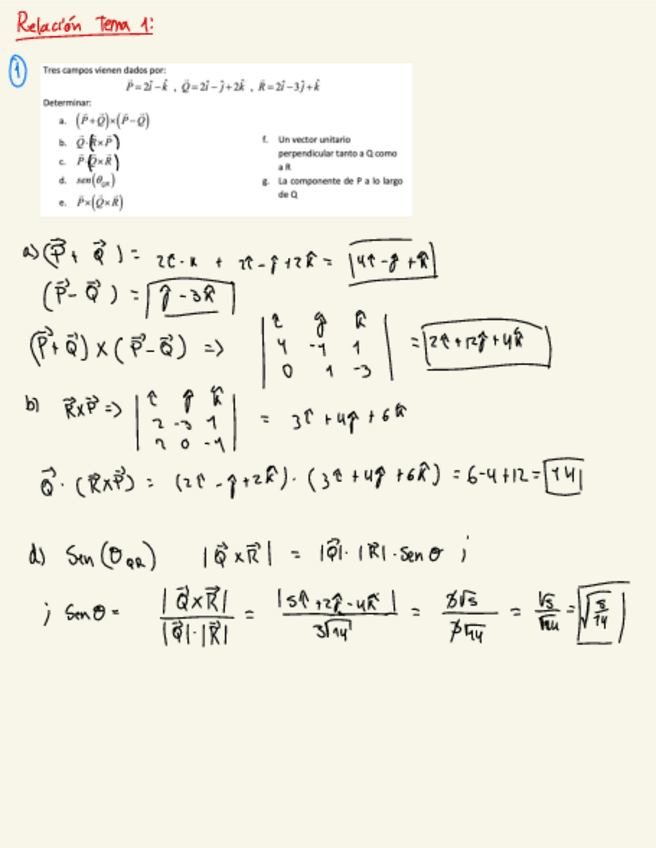 Relación Tema 1:
1
Tres campos vienen dados por:
P⃗=2î−k̂ , Q⃗=2î−ĵ+2k̂ , R⃗=2î−3ĵ+k̂
Determinar:
a. (P⃗+Q⃗)×(P⃗−Q⃗)
b. Q⃗·(R⃗×P⃗)
c. P⃗·(Q⃗×R⃗)
d. sen(θ_QR)
e. P⃗×(Q⃗×R⃗)
f. Un vector unitario
perpendicular tanto a Q como
a R
g. La componente de P a lo largo
de Q
a) (P⃗+Q⃗) = 2î-k + 2î-ĵ+2k̂ = 4î-ĵ+k̂
(P⃗-Q⃗) = ĵ-3k̂
(P⃗+Q⃗)×(P⃗-Q⃗) => | î ĵ k̂ | = 2î+12ĵ+4k̂
4 -1 1
0 1 -3
b) R⃗×P⃗ => | î ĵ k̂ | = 3î+4ĵ+6k̂
2 -3 1
2 0 -1
Q⃗·(R⃗×P⃗) = (2î-ĵ+2k̂)·(3î+4ĵ+6k̂) = 6-4+12 = 14
d) Sen(θ_QR) |Q⃗×R⃗| = |Q⃗|·|R|·Sen θ ;
; Sen θ = |Q⃗×R⃗| / |Q⃗|·|R⃗| = |5î+2ĵ-4k̂| / 3√14 = 3√5 / 3√14 = √5 / √14 = √(5/14)